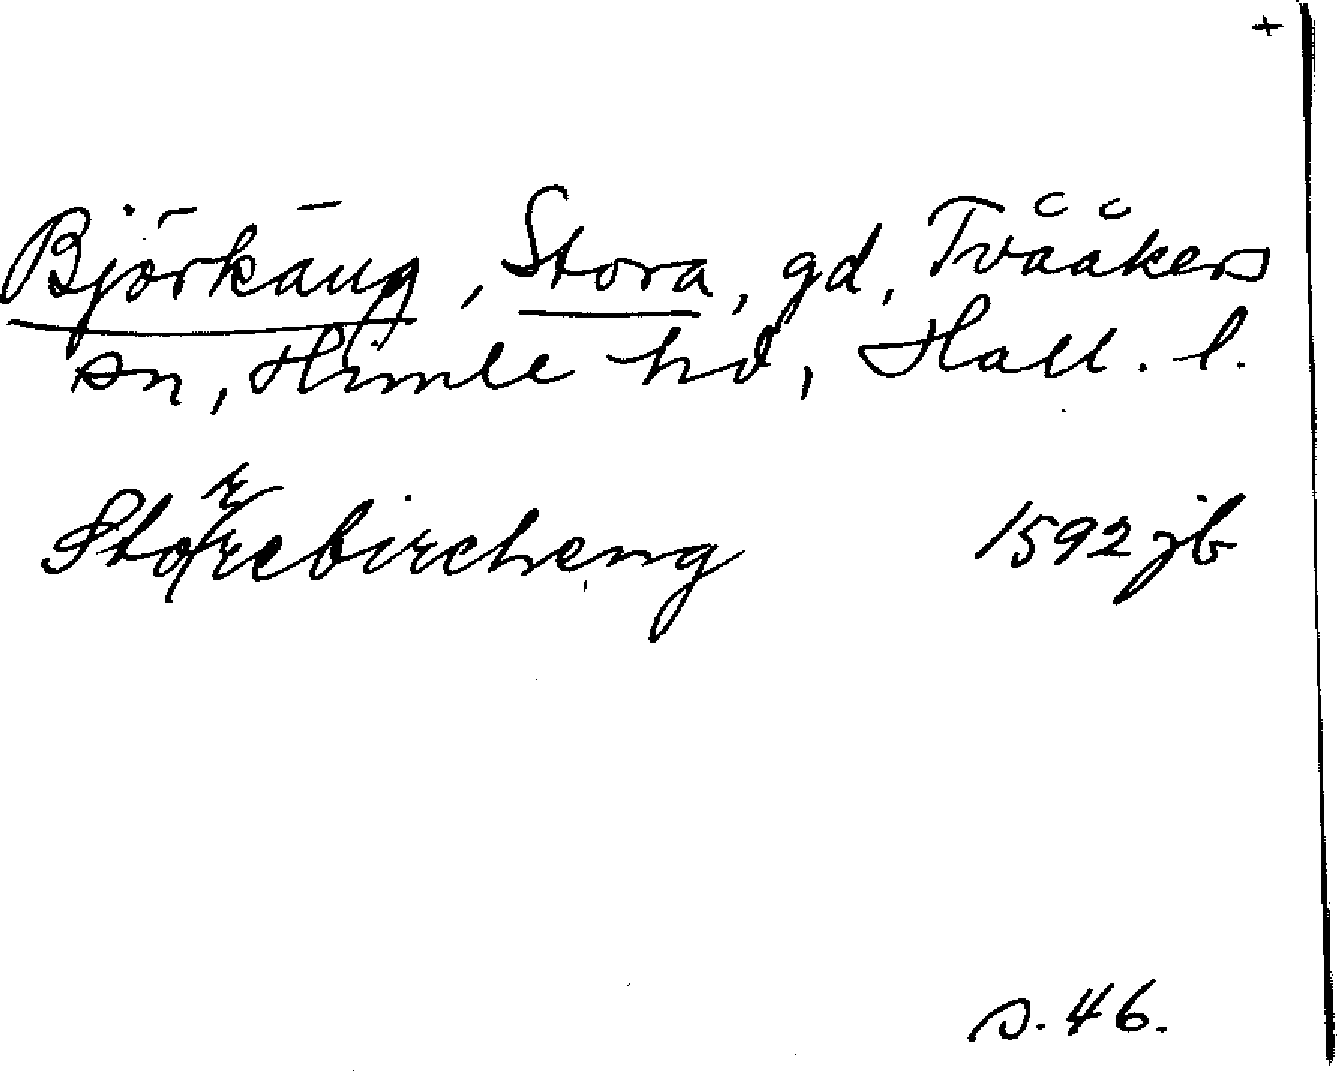 +
Björkäng, Stora, gd, Tvååkers
sn, Himle hd, Hall. l.
Storrebircheng 1592 jb
s. 46.